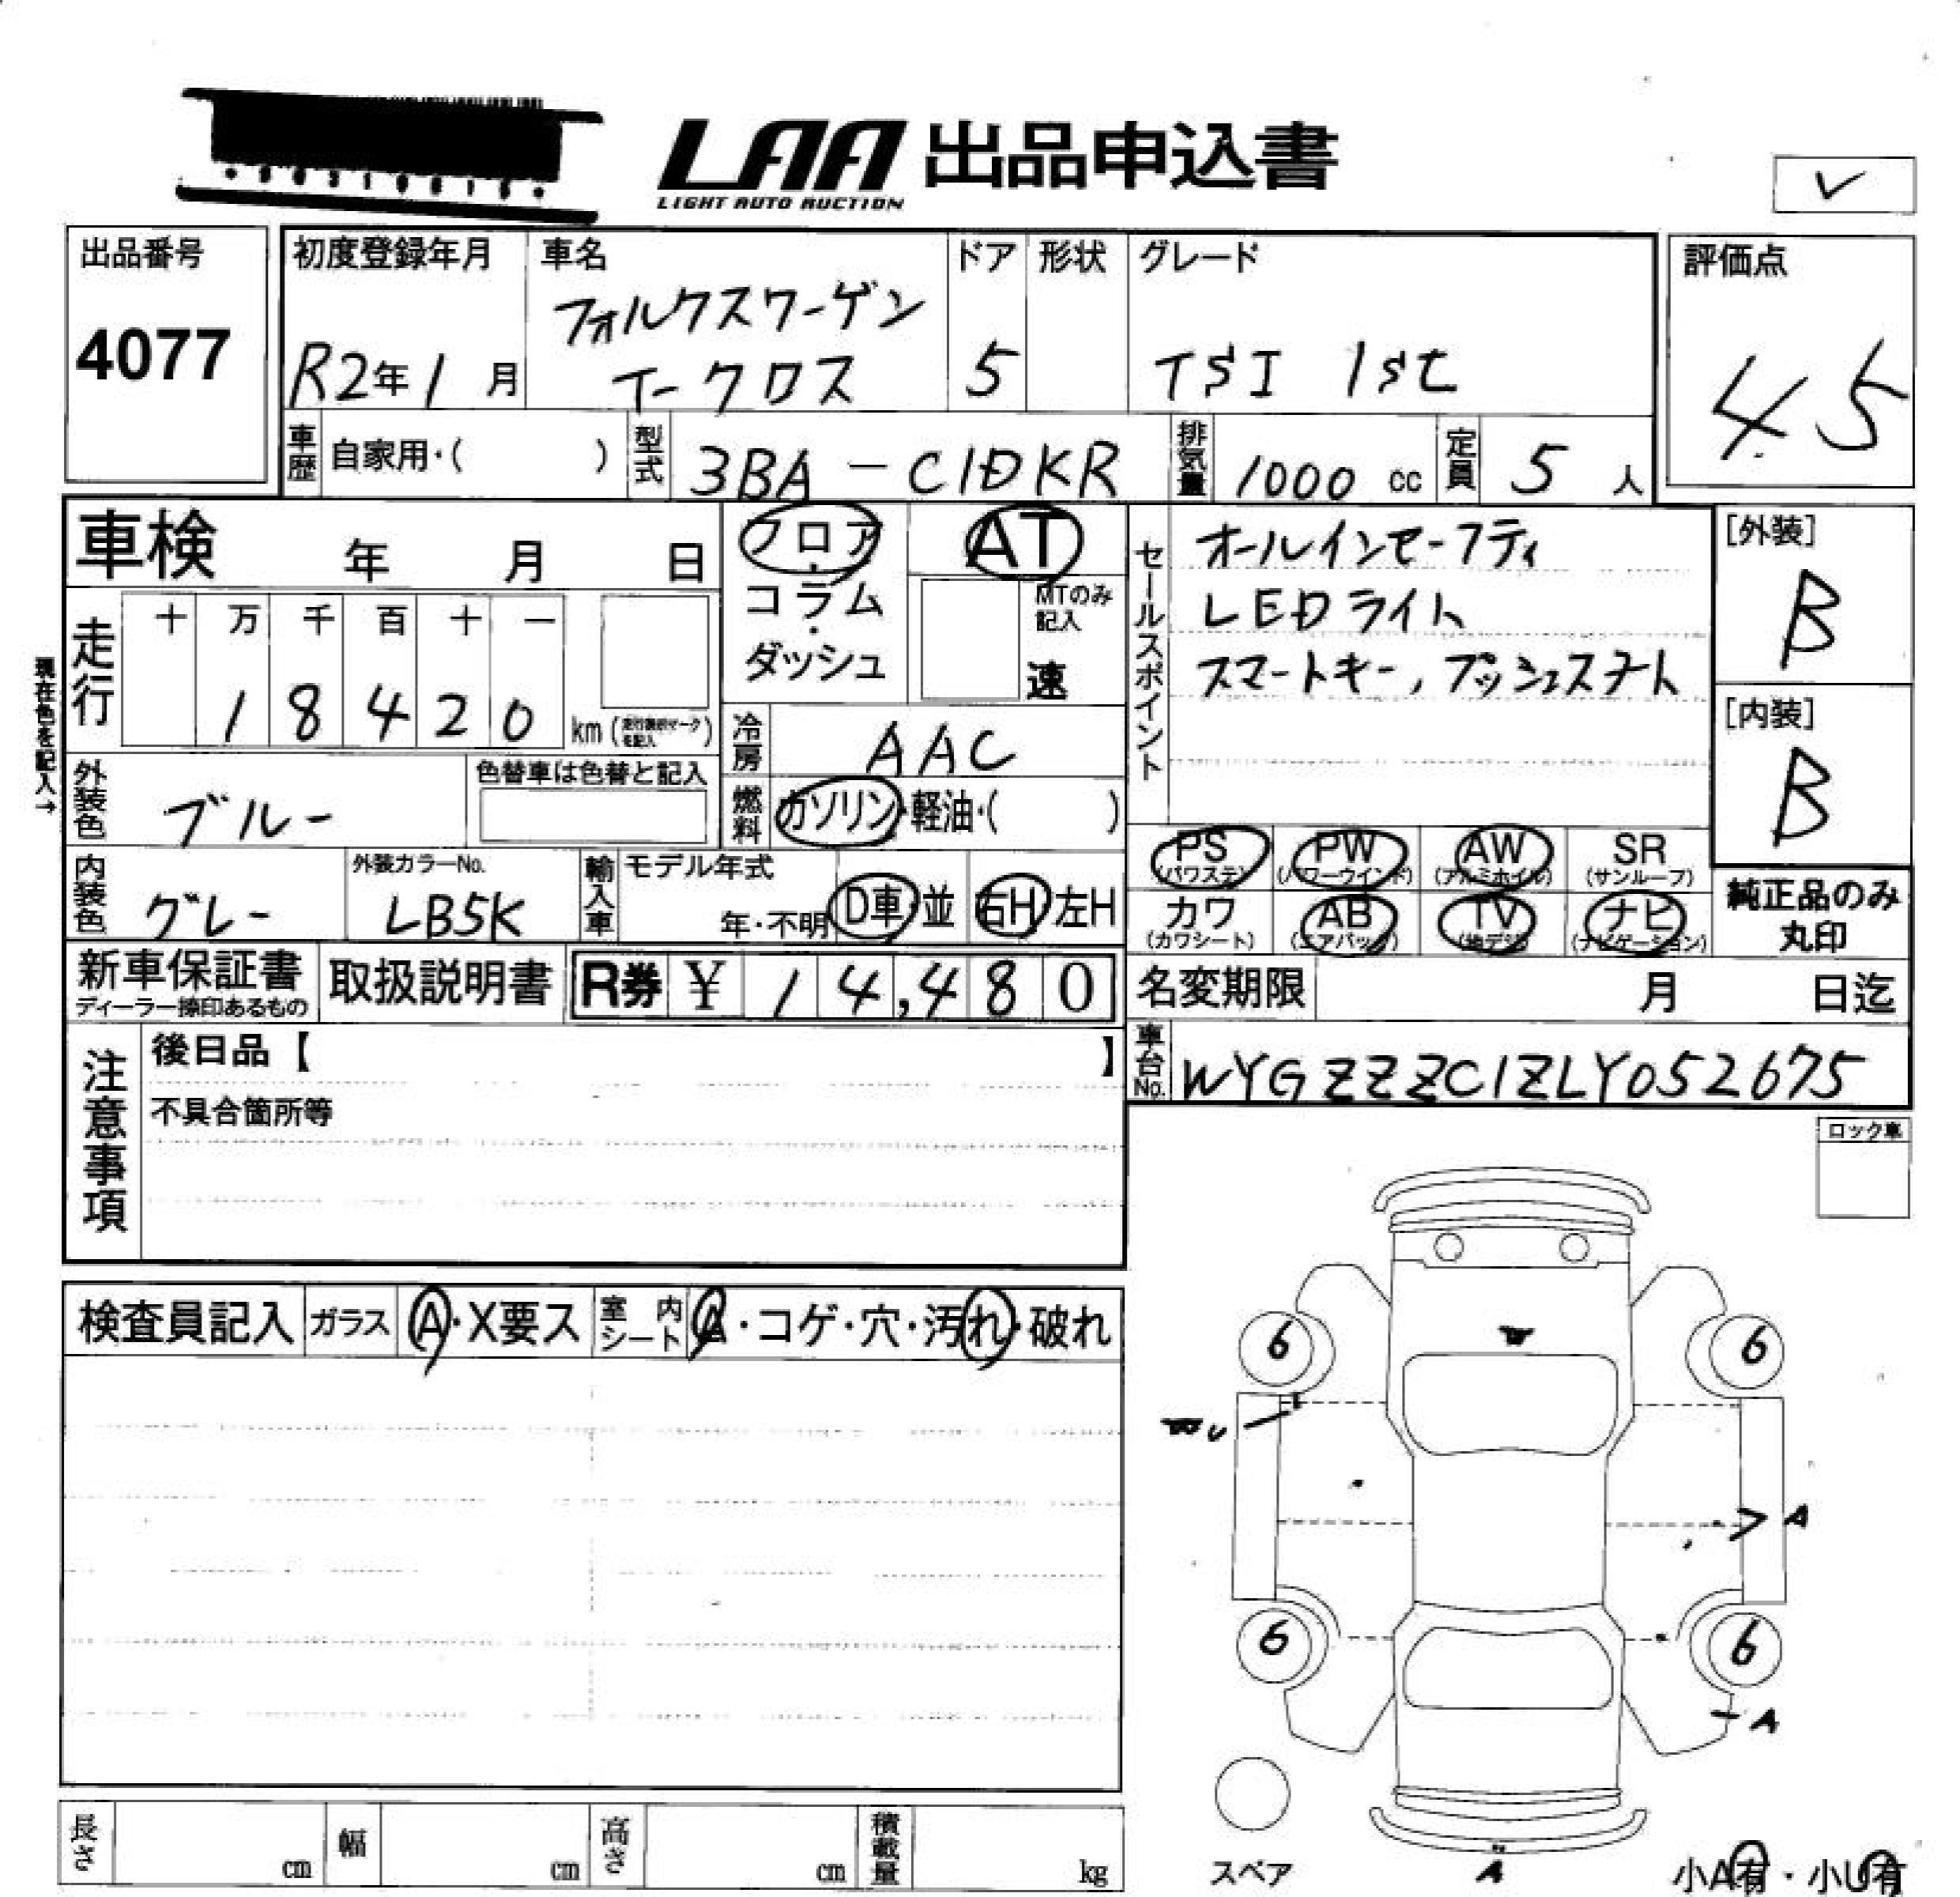 LAA 出品申込書
LIGHT AUTO AUCTION
出品番号
4077
初度登録年月
R2年1月
車名
フォルクスワーゲン
T-クロス
ドア
5
形状
グレード
TSI 1st
評価点
4.5
車歴 自家用・( )
型式 3BA-C1DKR
排気量 1000 cc
定員 5 人
車検 年 月 日
フロア・コラム・ダッシュ
AT
MTのみ記入
速
セールスポイント
オールインセーフティ
LEDライト
スマートキー, プッシュスタート
[外装]
B
[内装]
B
現在色を記入→
走行
十 万 千 百 十 一
1 8 4 2 0 km
冷房 AAC
燃料 ガソリン・軽油・( )
外装色 ブルー
色替車は色替と記入
内装色 グレー
外装カラーNo.
LB5K
輸入車
モデル年式
年・不明
D車・並
右H・左H
PS (パワステ)
PW (パワーウインド)
AW (アルミホイル)
SR (サンルーフ)
カワ (カワシート)
AB (エアバック)
TV (地デジ)
ナビ (ナビゲーション)
純正品のみ
丸印
新車保証書
ディーラー捺印あるもの
取扱説明書
R券 ¥ 14,480
名変期限 月 日迄
注意事項
後日品【 】
不具合箇所等
車台No. WVGZZZC1ZLY052675
ロック車
検査員記入 ガラス A・X要ス 室内シート A・コゲ・穴・汚れ・破れ
W
6 6
U
A
6 6
A
スペア
A
小A有・小U有
長さ cm 幅 cm 高さ cm 積載量 kg